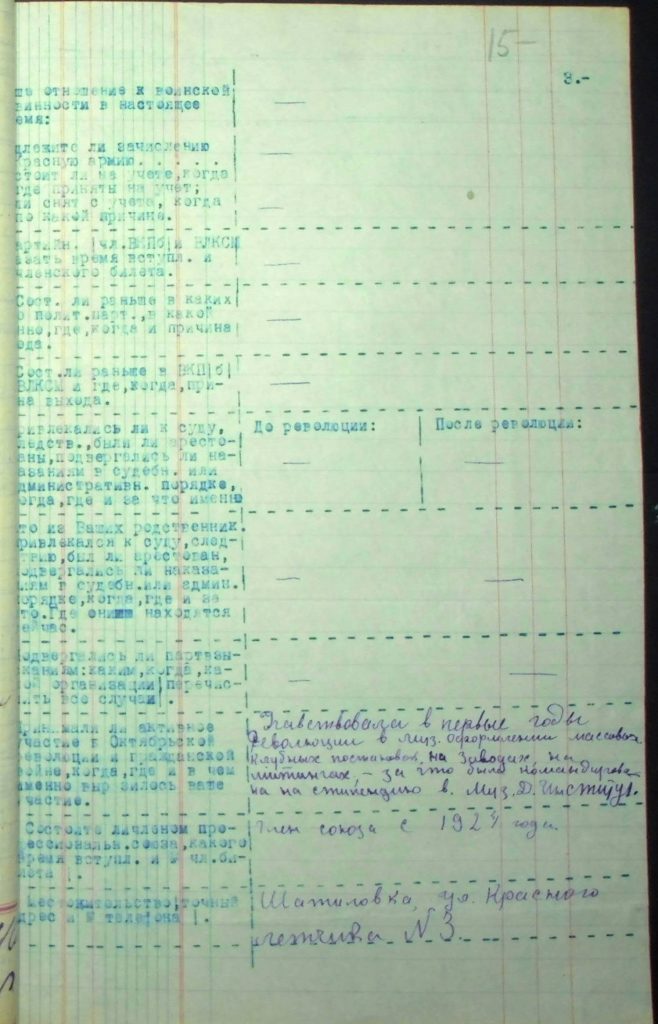 15-
3.-
ше отношение к воинской
винности в настоящее
емя:
длежите ли зачислению
Красную армию. . . . .
стоит ли на учете,когда
где приняты на учет;
ли снят с учета, когда
по какой причине.
артийн. |чл.ВКПб|и ВЛКСМ
азать время вступл. и
членского билета.
Сост. ли раньше в каких
о полит.парт.,в какой
нно,где,когда и причина
ода.
Сост.ли раньше в ВКП|б|
ВЛКСМ и где,когда,при-
на выхода.
ривлекались ли к суду,
ледств.,были ли аресто-
аны,подвергались ли на-
азаниям в судебн. или
дминистративн. порядке,
огда,где и за что именно
До революции:
После революции:
то из Ваших родственник.
ривлекался к суду,след-
твию,был ли арестован,
одвергались ли наказа-
иям в судебн.или админ.
орядке,когда,где и за
то.Где они находятся
ейчас.
Подвергались ли партвзы-
сканиям:каким,когда,ка-
кой организации|перечис-
лить все случаи|.
Принимали ли активное
участие в Октябрьской
революции и гражданской
войне,когда,где и в чем
именно выразилось ваше
участие.
Участвовала в первые годы
Революции в муз. оформлении массовых
клубных постановок, на заводах на
митингах, - за что была командирова-
на на стипендию в. Муз. Д. Институт.
Состоите ли членом про-
фессиональн.союза,какого
время вступл. и № чл.би-
лета|.
Член союза с 1924 года.
Местожительство|точный
адрес и № телефона|.
Шатиловка, ул. Красного
летчика N 3.